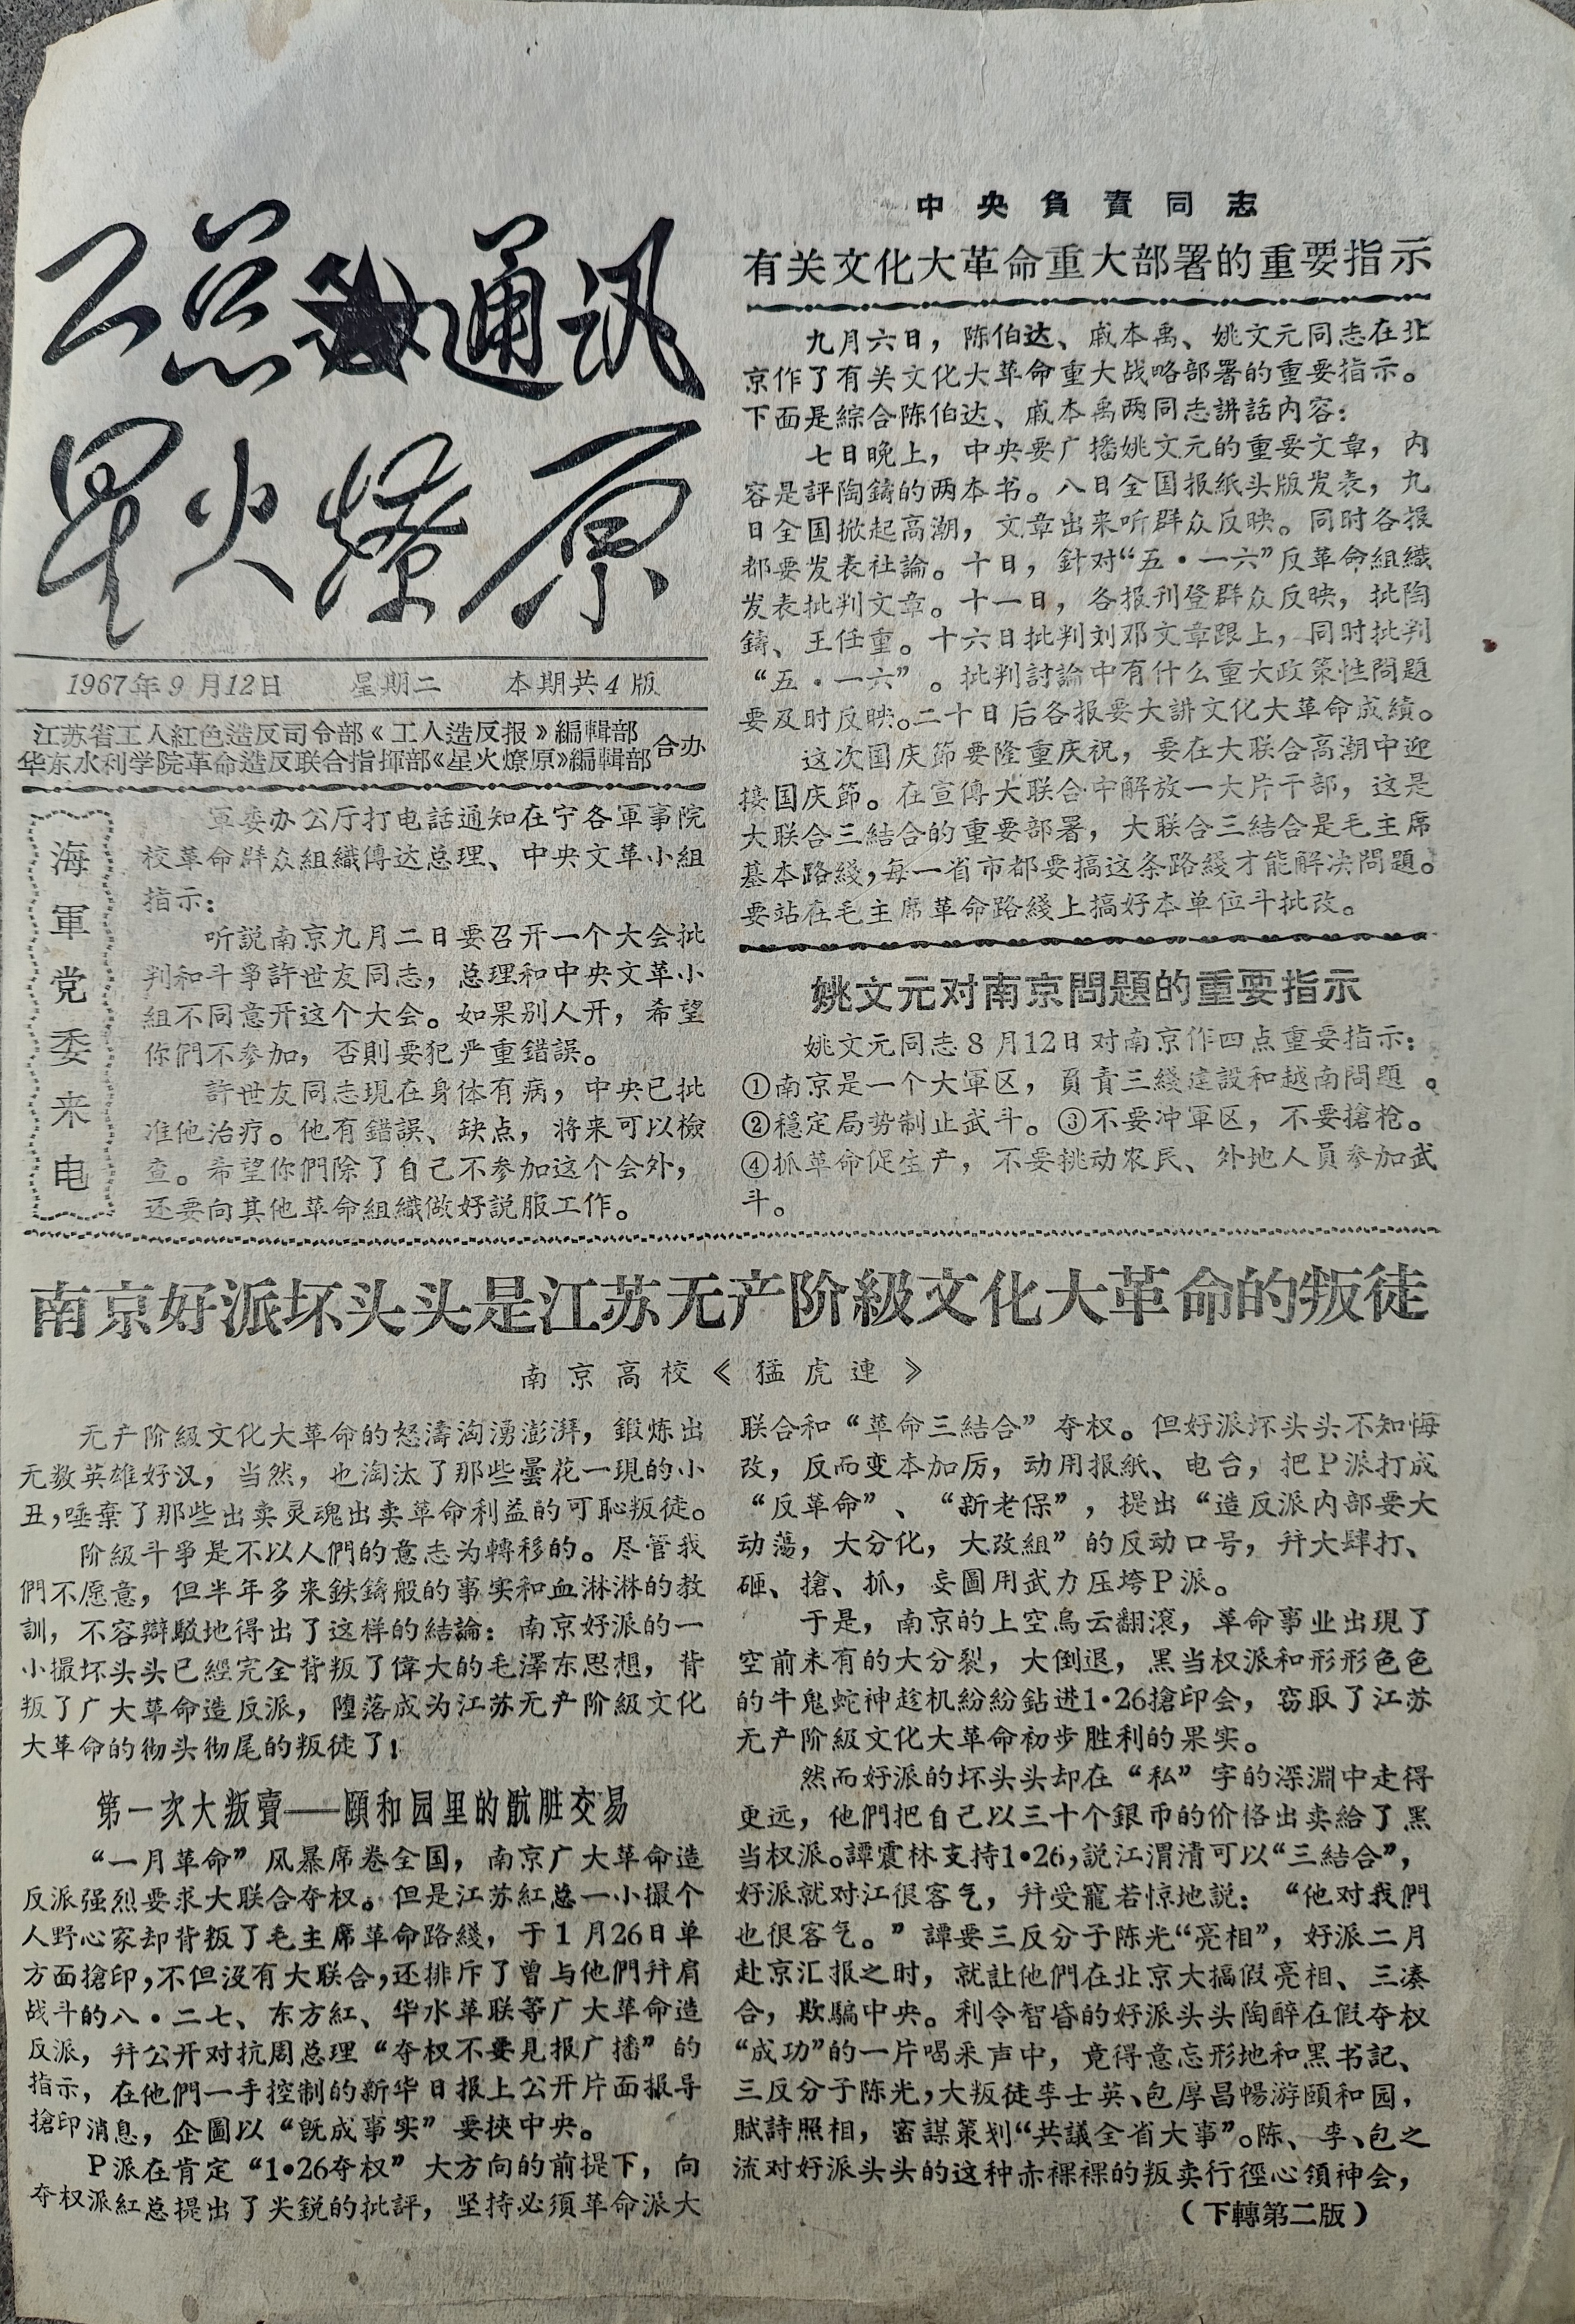 工总通訊
星火燎原
1967年9月12日 星期二 本期共4版
江苏省工人紅色造反司令部《工人造反报》編輯部
华东水利学院革命造反联合指揮部《星火燎原》編輯部
合办
海軍党委来电
軍委办公厅打电話通知在宁各軍事院
校革命群众組織傳达总理、中央文革小組
指示：
听説南京九月二日要召开一个大会批
判和斗爭許世友同志，总理和中央文革小
組不同意开这个大会。如果别人开，希望
你們不参加，否則要犯严重錯誤。
許世友同志現在身体有病，中央已批
准他治疗。他有錯誤、缺点，将来可以檢
查。希望你們除了自己不参加这个会外，
还要向其他革命組織做好説服工作。
中央負責同志
有关文化大革命重大部署的重要指示
九月六日，陈伯达、戚本禹、姚文元同志在北
京作了有关文化大革命重大战略部署的重要指示。
下面是綜合陈伯达、戚本禹两同志講話内容：
七日晚上，中央要广播姚文元的重要文章，内
容是評陶鑄的两本书。八日全国报紙头版发表，九
日全国掀起高潮，文章出来听群众反映。同时各报
都要发表社論。十日，針对“五·一六”反革命組織
发表批判文章。十一日，各报刊登群众反映，批陶
鑄、王任重。十六日批判刘邓文章跟上，同时批判
“五·一六”。批判討論中有什么重大政策性問題
要及时反映。二十日后各报要大講文化大革命成績。
这次国庆節要隆重庆祝，要在大联合高潮中迎
接国庆節。在宣傳大联合中解放一大片干部，这是
大联合三結合的重要部署，大联合三結合是毛主席
基本路綫，每一省市都要搞这条路綫才能解决問題。
要站在毛主席革命路綫上搞好本单位斗批改。
姚文元对南京問題的重要指示
姚文元同志8月12日对南京作四点重要指示：
①南京是一个大軍区，負責三綫建設和越南問題。
②穩定局势制止武斗。③不要冲軍区，不要搶枪。
④抓革命促生产，不要挑动农民、外地人員参加武
斗。
南京好派坏头头是江苏无产阶級文化大革命的叛徒
南京高校《猛虎連》
无产阶級文化大革命的怒濤洶湧澎湃，鍛炼出
无数英雄好汉，当然，也淘汰了那些曇花一現的小
丑，唾棄了那些出卖灵魂出卖革命利益的可恥叛徒。
阶級斗爭是不以人們的意志为轉移的。尽管我
們不愿意，但半年多来鉄鑄般的事实和血淋淋的教
訓，不容辯駁地得出了这样的結論：南京好派的一
小撮坏头头已經完全背叛了偉大的毛澤东思想，背
叛了广大革命造反派，堕落成为江苏无产阶級文化
大革命的彻头彻尾的叛徒了！
第一次大叛賣——頤和园里的骯脏交易
“一月革命”风暴席卷全国，南京广大革命造
反派强烈要求大联合夺权。但是江苏紅总一小撮个
人野心家却背叛了毛主席革命路綫，于1月26日单
方面搶印，不但没有大联合，还排斥了曾与他們幷肩
战斗的八·二七、东方紅、华水革联等广大革命造
反派，幷公开对抗周总理“夺权不要見报广播”的
指示，在他們一手控制的新华日报上公开片面报导
搶印消息，企圖以“既成事实”要挾中央。
P派在肯定“1·26夺权”大方向的前提下，向
夺权派紅总提出了尖鋭的批評，坚持必须革命派大
联合和“革命三結合”夺权。但好派坏头头不知悔
改，反而变本加厉，动用报紙、电台，把P派打成
“反革命”、“新老保”，提出“造反派内部要大
动蕩，大分化，大改組”的反动口号，幷大肆打、
砸、搶、抓，妄圖用武力压垮P派。
于是，南京的上空烏云翻滾，革命事业出現了
空前未有的大分裂，大倒退，黑当权派和形形色色
的牛鬼蛇神趁机紛紛鉆进1·26搶印会，窃取了江苏
无产阶級文化大革命初步胜利的果实。
然而好派的坏头头却在“私”字的深淵中走得
更远，他們把自己以三十个銀币的价格出卖給了黑
当权派。譚震林支持1·26，説江渭清可以“三結合”，
好派就对江很客气，幷受寵若惊地説：“他对我們
也很客气。”譚要三反分子陈光“亮相”，好派二月
赴京汇报之时，就註他們在北京大搞假亮相、三凑
合，欺騙中央。利令智昏的好派头头陶醉在假夺权
“成功”的一片喝采声中，竟得意忘形地和黑书記、
三反分子陈光，大叛徒李士英、包厚昌暢游頤和园，
賦詩照相，密謀策划“共議全省大事”。陈、李、包之
流对好派头头的这种赤裸裸的叛卖行徑心領神会，
（下轉第二版）